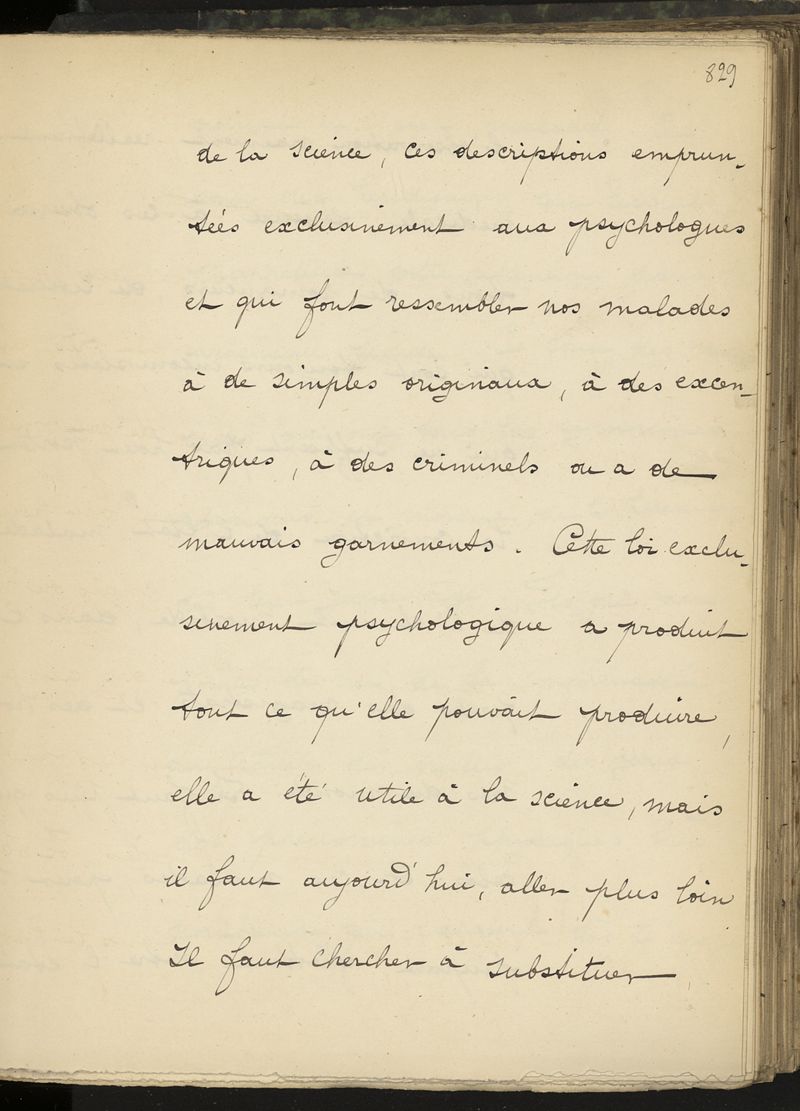 829
de la science, ces descriptions emprun-
tées exclusivement aux psychologues
et qui font ressembler nos malades
à de simples originaux, à des excen-
triques, à des criminels ou a de
mauvais garnements. Cette loi exclu-
sivement psychologique a produit
tout ce qu'elle pouvait produire,
elle a été utile à la science, mais
il faut aujourd'hui, aller plus loin
Il faut chercher à substituer